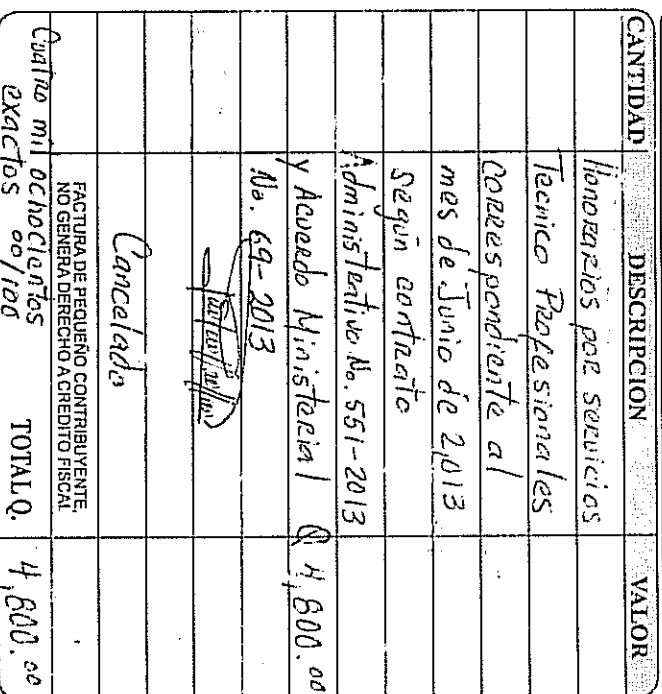 CANTIDAD DESCRIPCION VALOR
Honorarios por servicios
Tecnico Profesionales
Correspondiente al
mes de Junio de 2,013
Según contrato
Administrativo No. 551-2013
y Acuerdo Ministerial Q 4,800.00
No. 69-2013
Cancelado
FACTURA DE PEQUEÑO CONTRIBUYENTE,
NO GENERA DERECHO A CREDITO FISCAL
Cuatro mil ochocientos
exactos 00/100 TOTAL Q. 4,800.00